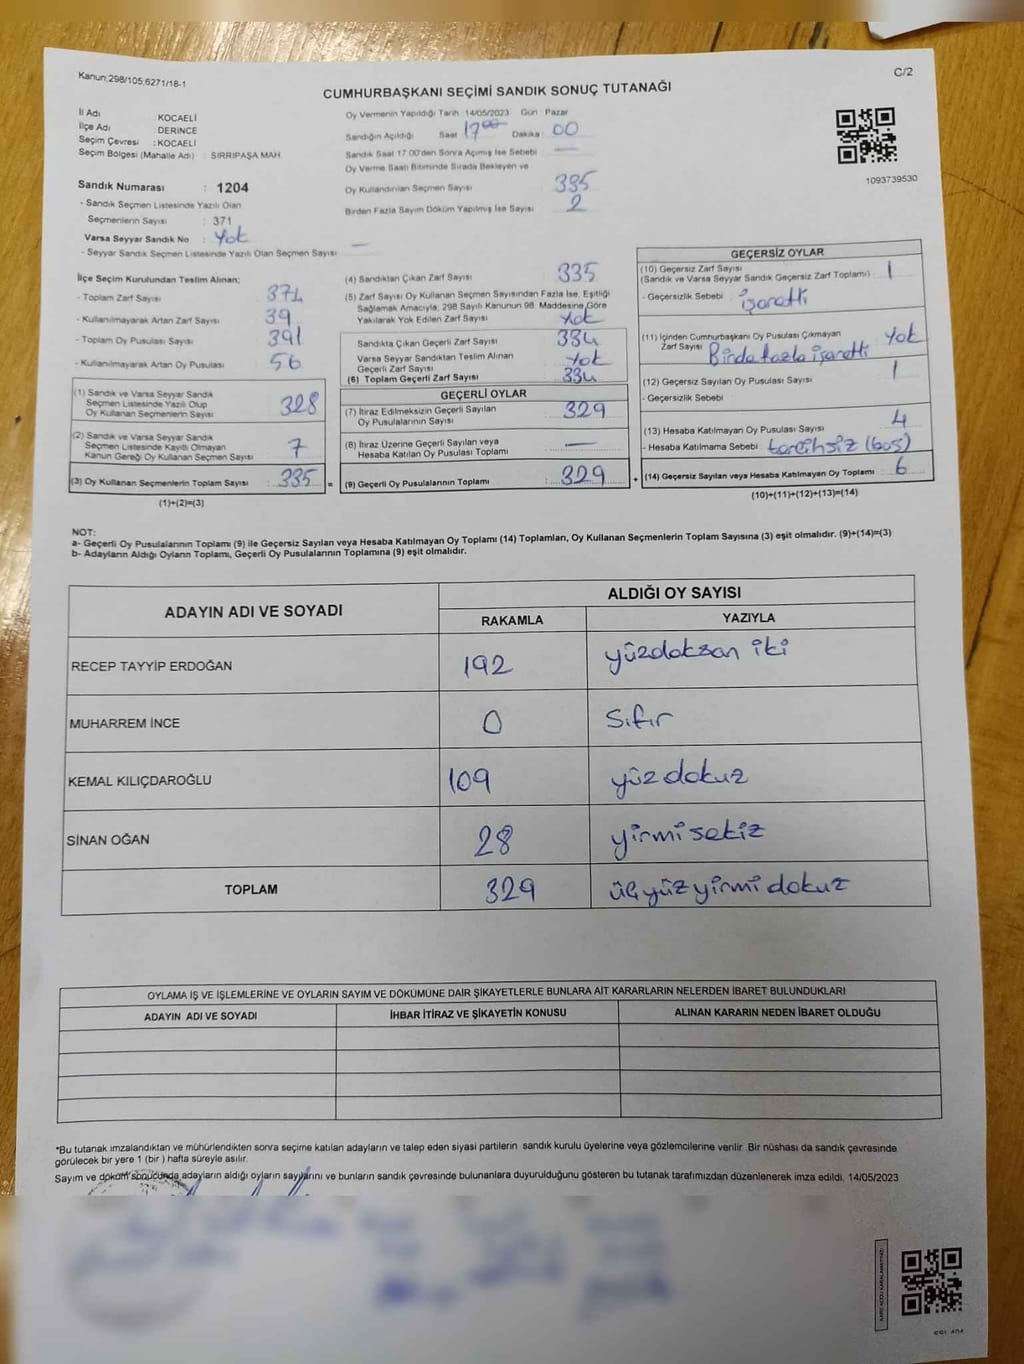 Kanun:298/105;6271/18-1
C/2
CUMHURBAŞKANI SEÇİMİ SANDIK SONUÇ TUTANAĞI
İl Adı : KOCAELİ
İlçe Adı : DERİNCE
Seçim Çevresi : KOCAELİ
Seçim Bölgesi (Mahalle Adı) : SIRRIPAŞA MAH.
Sandık Numarası : 1204
- Sandık Seçmen Listesinde Yazılı Olan
Seçmenlerin Sayısı : 371
Varsa Seyyar Sandık No : Yok
- Seyyar Sandık Seçmen Listesinde Yazılı Olan Seçmen Sayısı: —
Oy Vermenin Yapıldığı Tarih 14/05/2023 Gün : Pazar
Sandığın Açıldığı Saat 17:00 Dakika : 00
Sandık Saat 17.00'den Sonra Açılmış İse Sebebi : —
Oy Verme Saati Bitiminde Sırada Bekleyen ve
Oy Kullandırılan Seçmen Sayısı : 335
Birden Fazla Sayım Döküm Yapılmış İse Sayısı : 2
1093739530
İlçe Seçim Kurulundan Teslim Alınan;
- Toplam Zarf Sayısı : 374
- Kullanılmayarak Artan Zarf Sayısı : 39
- Toplam Oy Pusulası Sayısı : 391
- Kullanılmayarak Artan Oy Pusulası : 56
(1) Sandık ve Varsa Seyyar Sandık
Seçmen Listesinde Yazılı Olup
Oy Kullanan Seçmenlerin Sayısı : 328
(2) Sandık ve Varsa Seyyar Sandık
Seçmen Listesinde Kayıtlı Olmayan
Kanun Gereği Oy Kullanan Seçmen Sayısı : 7
(3) Oy Kullanan Seçmenlerin Toplam Sayısı : 335 =
(1)+(2)=(3)
(4) Sandıktan Çıkan Zarf Sayısı : 335
(5) Zarf Sayısı Oy Kullanan Seçmen Sayısından Fazla İse, Eşitliği
Sağlamak Amacıyla, 298 Sayılı Kanunun 98. Maddesine Göre
Yakılarak Yok Edilen Zarf Sayısı : Yok
Sandıkta Çıkan Geçerli Zarf Sayısı : 334
Varsa Seyyar Sandıktan Teslim Alınan
Geçerli Zarf Sayısı : Yok
(6) Toplam Geçerli Zarf Sayısı : 334
GEÇERLİ OYLAR
(7) İtiraz Edilmeksizin Geçerli Sayılan
Oy Pusulalarının Sayısı : 329
(8) İtiraz Üzerine Geçerli Sayılan veya
Hesaba Katılan Oy Pusulası Toplamı : —
(9) Geçerli Oy Pusulalarının Toplamı : 329 +
GEÇERSİZ OYLAR
(10) Geçersiz Zarf Sayısı : 1
(Sandık ve Varsa Seyyar Sandık Geçersiz Zarf Toplamı)
- Geçersizlik Sebebi : işaretli
(11) İçinden Cumhurbaşkanı Oy Pusulası Çıkmayan
Zarf Sayısı : Yok
Birde fazla işaretli
(12) Geçersiz Sayılan Oy Pusulası Sayısı : 1
- Geçersizlik Sebebi
(13) Hesaba Katılmayan Oy Sayısı : 4
- Hesaba Katılmama Sebebi : tercihsiz (boş)
(14) Geçersiz Sayılan veya Hesaba Katılmayan Oy Toplamı : 6
(10)+(11)+(12)+(13)=(14)
NOT:
a- Geçerli Oy Pusulalarının Toplamı (9) ile Geçersiz Sayılan veya Hesaba Katılmayan Oy Toplamı (14) Toplamları, Oy Kullanan Seçmenlerin Toplam Sayısına (3) eşit olmalıdır. (9)+(14)=(3)
b- Adayların Aldığı Oyların Toplamı, Geçerli Oy Pusulalarının Toplamına (9) eşit olmalıdır.
ADAYIN ADI VE SOYADI
ALDIĞI OY SAYISI
RAKAMLA YAZIYLA
RECEP TAYYİP ERDOĞAN 192 yüzdoksan iki
MUHARREM İNCE 0 Sıfır
KEMAL KILIÇDAROĞLU 109 yüzdokuz
SİNAN OĞAN 28 yirmisekiz
TOPLAM 329 üçyüzyirmidokuz
OYLAMA İŞ VE İŞLEMLERİNE VE OYLARIN SAYIM VE DÖKÜMÜNE DAİR ŞİKAYETLERLE BUNLARA AİT KARARLARIN NELERDEN İBARET BULUNDUKLARI
ADAYIN ADI VE SOYADI İHBAR İTİRAZ VE ŞİKAYETİN KONUSU ALINAN KARARIN NEDEN İBARET OLDUĞU
*Bu tutanak imzalandıktan ve mühürlendikten sonra seçime katılan adayların ve talep eden siyasi partilerin sandık kurulu üyelerine veya gözlemcilerine verilir. Bir nüshası da sandık çevresinde
görülecek bir yere 1 (bir ) hafta süreyle asılır.
Sayım ve döküm sonucunda adayların aldığı oyların sayılarını ve bunların sandık çevresinde bulunanlara duyurulduğunu gösteren bu tutanak tarafımızdan düzenlenerek imza edildi. 14/05/2023